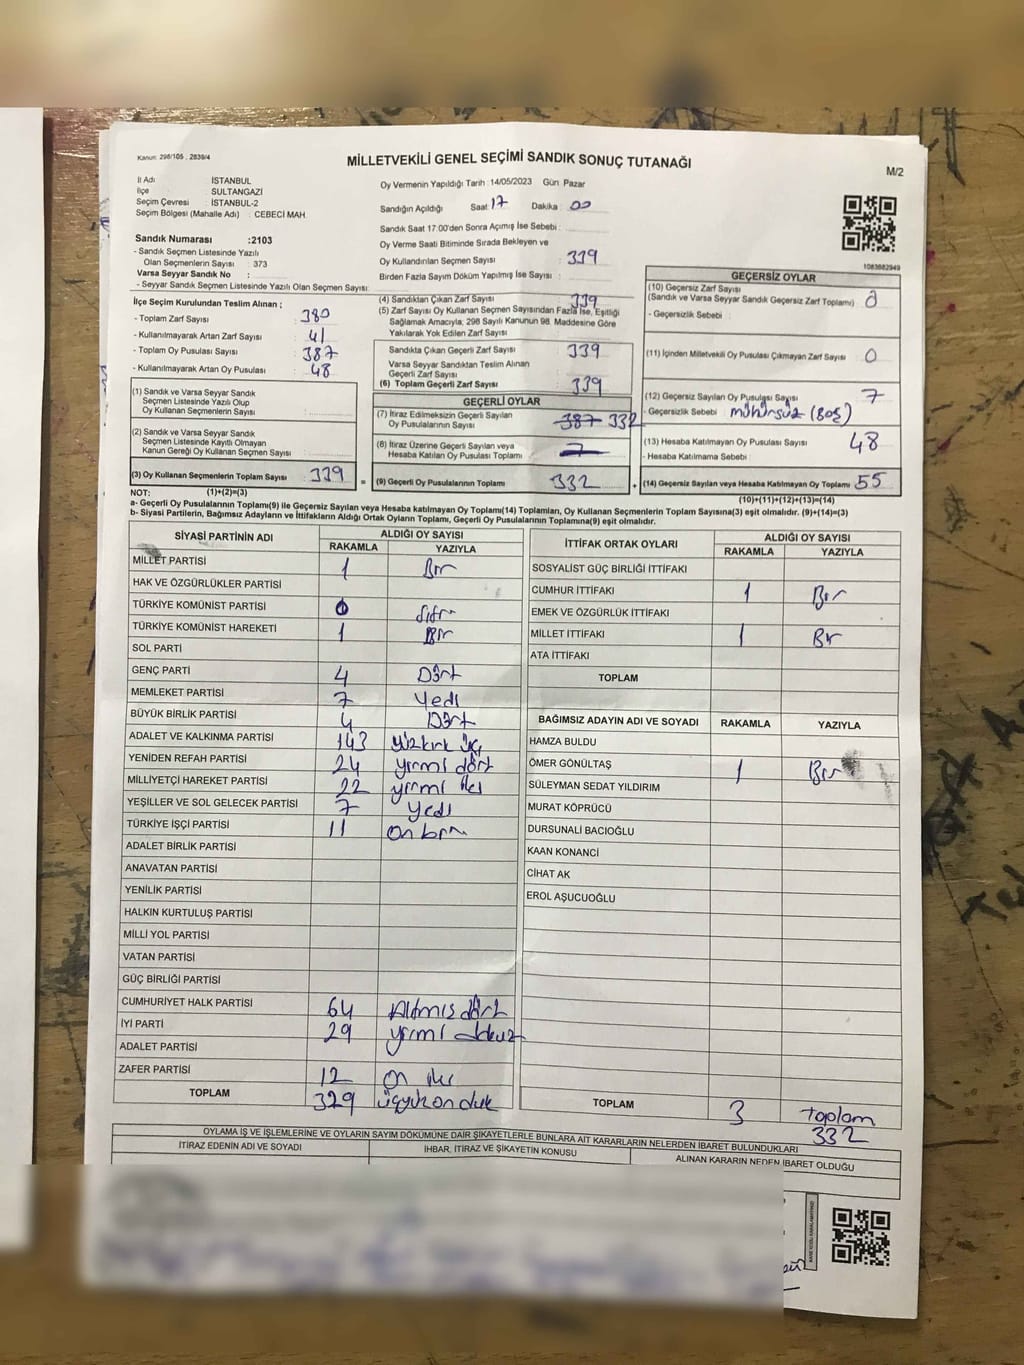 Kanun: 298/105 , 2839/4
MİLLETVEKİLİ GENEL SEÇİMİ SANDIK SONUÇ TUTANAĞI
M/2
İl Adı : İSTANBUL
İlçe : SULTANGAZİ
Seçim Çevresi : İSTANBUL-2
Seçim Bölgesi (Mahalle Adı) : CEBECİ MAH.
Sandık Numarası :2103
- Sandık Seçmen Listesinde Yazılı
Olan Seçmenlerin Sayısı : 373
Varsa Seyyar Sandık No :
- Seyyar Sandık Seçmen Listesinde Yazılı Olan Seçmen Sayısı:
Oy Vermenin Yapıldığı Tarih :14/05/2023 Gün Pazar
Sandığın Açıldığı Saat: 17 Dakika : 00
Sandık Saat 17:00'den Sonra Açımış İse Sebebi :
Oy Verme Saati Bitiminde Sırada Bekleyen ve
Oy Kullandırılan Seçmen Sayısı : 339
Birden Fazla Sayım Döküm Yapılmış İse Sayısı :
1083682949
İlçe Seçim Kurulundan Teslim Alınan ;
- Toplam Zarf Sayısı : 380
- Kullanılmayarak Artan Zarf Sayısı : 41
- Toplam Oy Pusulası Sayısı : 387
- Kullanılmayarak Artan Oy Pusulası : 48
(1) Sandık ve Varsa Seyyar Sandık
Seçmen Listesinde Yazılı Olup
Oy Kullanan Seçmenlerin Sayısı :
(2) Sandık ve Varsa Seyyar Sandık
Seçmen Listesinde Kayıtlı Olmayan
Kanun Gereği Oy Kullanan Seçmen Sayısı:
(3) Oy Kullanan Seçmenlerin Toplam Sayısı : 339
(4) Sandıktan Çıkan Zarf Sayısı : 339
(5) Zarf Sayısı Oy Kullanan Seçmen Sayısından Fazla İse, Eşitliği
Sağlamak Amacıyla, 298 Sayılı Kanunun 98. Maddesine Göre
Yakılarak Yok Edilen Zarf Sayısı :
Sandıkta Çıkan Geçerli Zarf Sayısı : 339
Varsa Seyyar Sandıktan Teslim Alınan
Geçerli Zarf Sayısı :
(6) Toplam Geçerli Zarf Sayısı : 339
GEÇERLİ OYLAR
(7) İtiraz Edilmeksizin Geçerli Sayılan
Oy Pusulalarının Sayısı : 387 332
(8) İtiraz Üzerine Geçerli Sayılan veya
Hesaba Katılan Oy Pusulası Toplamı : 7
= (9) Geçerli Oy Pusulalarının Toplamı : 332
GEÇERSİZ OYLAR
(10) Geçersiz Zarf Sayısı
(Sandık ve Varsa Seyyar Sandık Geçersiz Zarf Toplamı) : 0
- Geçersizlik Sebebi :
(11) İçinden Milletvekili Oy Pusulası Çıkmayan Zarf Sayısı : 0
(12) Geçersiz Sayılan Oy Pusulası Sayısı : 7
- Geçersizlik Sebebi : mühürsüz (Boş)
(13) Hesaba Katılmayan Oy Pusulası Sayısı : 48
- Hesaba Katılmama Sebebi :
+ (14) Geçersiz Sayılan veya Hesaba Katılmayan Oy Toplamı : 55
NOT: (1)+(2)=(3)
(10)+(11)+(12)+(13)=(14)
a- Geçerli Oy Pusulalarının Toplamı(9) ile Geçersiz Sayılan veya Hesaba katılmayan Oy Toplamı(14) Toplamları, Oy Kullanan Seçmenlerin Toplam Sayısına(3) eşit olmalıdır. (9)+(14)=(3)
b- Siyasi Partilerin, Bağımsız Adayların ve İttifakların Aldığı Ortak Oyların Toplamı, Geçerli Oy Pusulalarının Toplamına(9) eşit olmalıdır.
SİYASİ PARTİNİN ADI ALDIĞI OY SAYISI
RAKAMLA YAZIYLA
MİLLET PARTİSİ 1 Bir
HAK VE ÖZGÜRLÜKLER PARTİSİ
TÜRKİYE KOMÜNİST PARTİSİ 0 Sıfır
TÜRKİYE KOMÜNİST HAREKETİ 1 Bir
SOL PARTİ
GENÇ PARTİ 4 Dört
MEMLEKET PARTİSİ 7 Yedi
BÜYÜK BİRLİK PARTİSİ 4 Dört
ADALET VE KALKINMA PARTİSİ 143 yüzkırk üç
YENİDEN REFAH PARTİSİ 24 yirmi dört
MİLLİYETÇİ HAREKET PARTİSİ 22 yirmi iki
YEŞİLLER VE SOL GELECEK PARTİSİ 7 Yedi
TÜRKİYE İŞÇİ PARTİSİ 11 on bir
ADALET BİRLİK PARTİSİ
ANAVATAN PARTİSİ
YENİLİK PARTİSİ
HALKIN KURTULUŞ PARTİSİ
MİLLİ YOL PARTİSİ
VATAN PARTİSİ
GÜÇ BİRLİĞİ PARTİSİ
CUMHURİYET HALK PARTİSİ 64 Altmış dört
İYİ PARTİ 29 yirmi dokuz
ADALET PARTİSİ
ZAFER PARTİSİ 12 on iki
TOPLAM 329
İTTİFAK ORTAK OYLARI ALDIĞI OY SAYISI
RAKAMLA YAZIYLA
SOSYALİST GÜÇ BİRLİĞİ İTTİFAKI
CUMHUR İTTİFAKI 1 Bir
EMEK VE ÖZGÜRLÜK İTTİFAKI
MİLLET İTTİFAKI 1 Bir
ATA İTTİFAKI
TOPLAM
BAĞIMSIZ ADAYIN ADI VE SOYADI RAKAMLA YAZIYLA
HAMZA BULDU
ÖMER GÖNÜLTAŞ 1 Bir
SÜLEYMAN SEDAT YILDIRIM
MURAT KÖPRÜCÜ
DURSUNALİ BACIOĞLU
KAAN KONANCİ
CİHAT AK
EROL AŞUCUOĞLU
TOPLAM 3 Toplam
332
OYLAMA İŞ VE İŞLEMLERİNE VE OYLARIN SAYIM DÖKÜMÜNE DAİR ŞİKAYETLERLE BUNLARA AİT KARARLARIN NELERDEN İBARET BULUNDUKLARI
İTİRAZ EDENİN ADI VE SOYADI İHBAR, İTİRAZ VE ŞİKAYETİN KONUSU ALINAN KARARIN NEDEN İBARET OLDUĞU